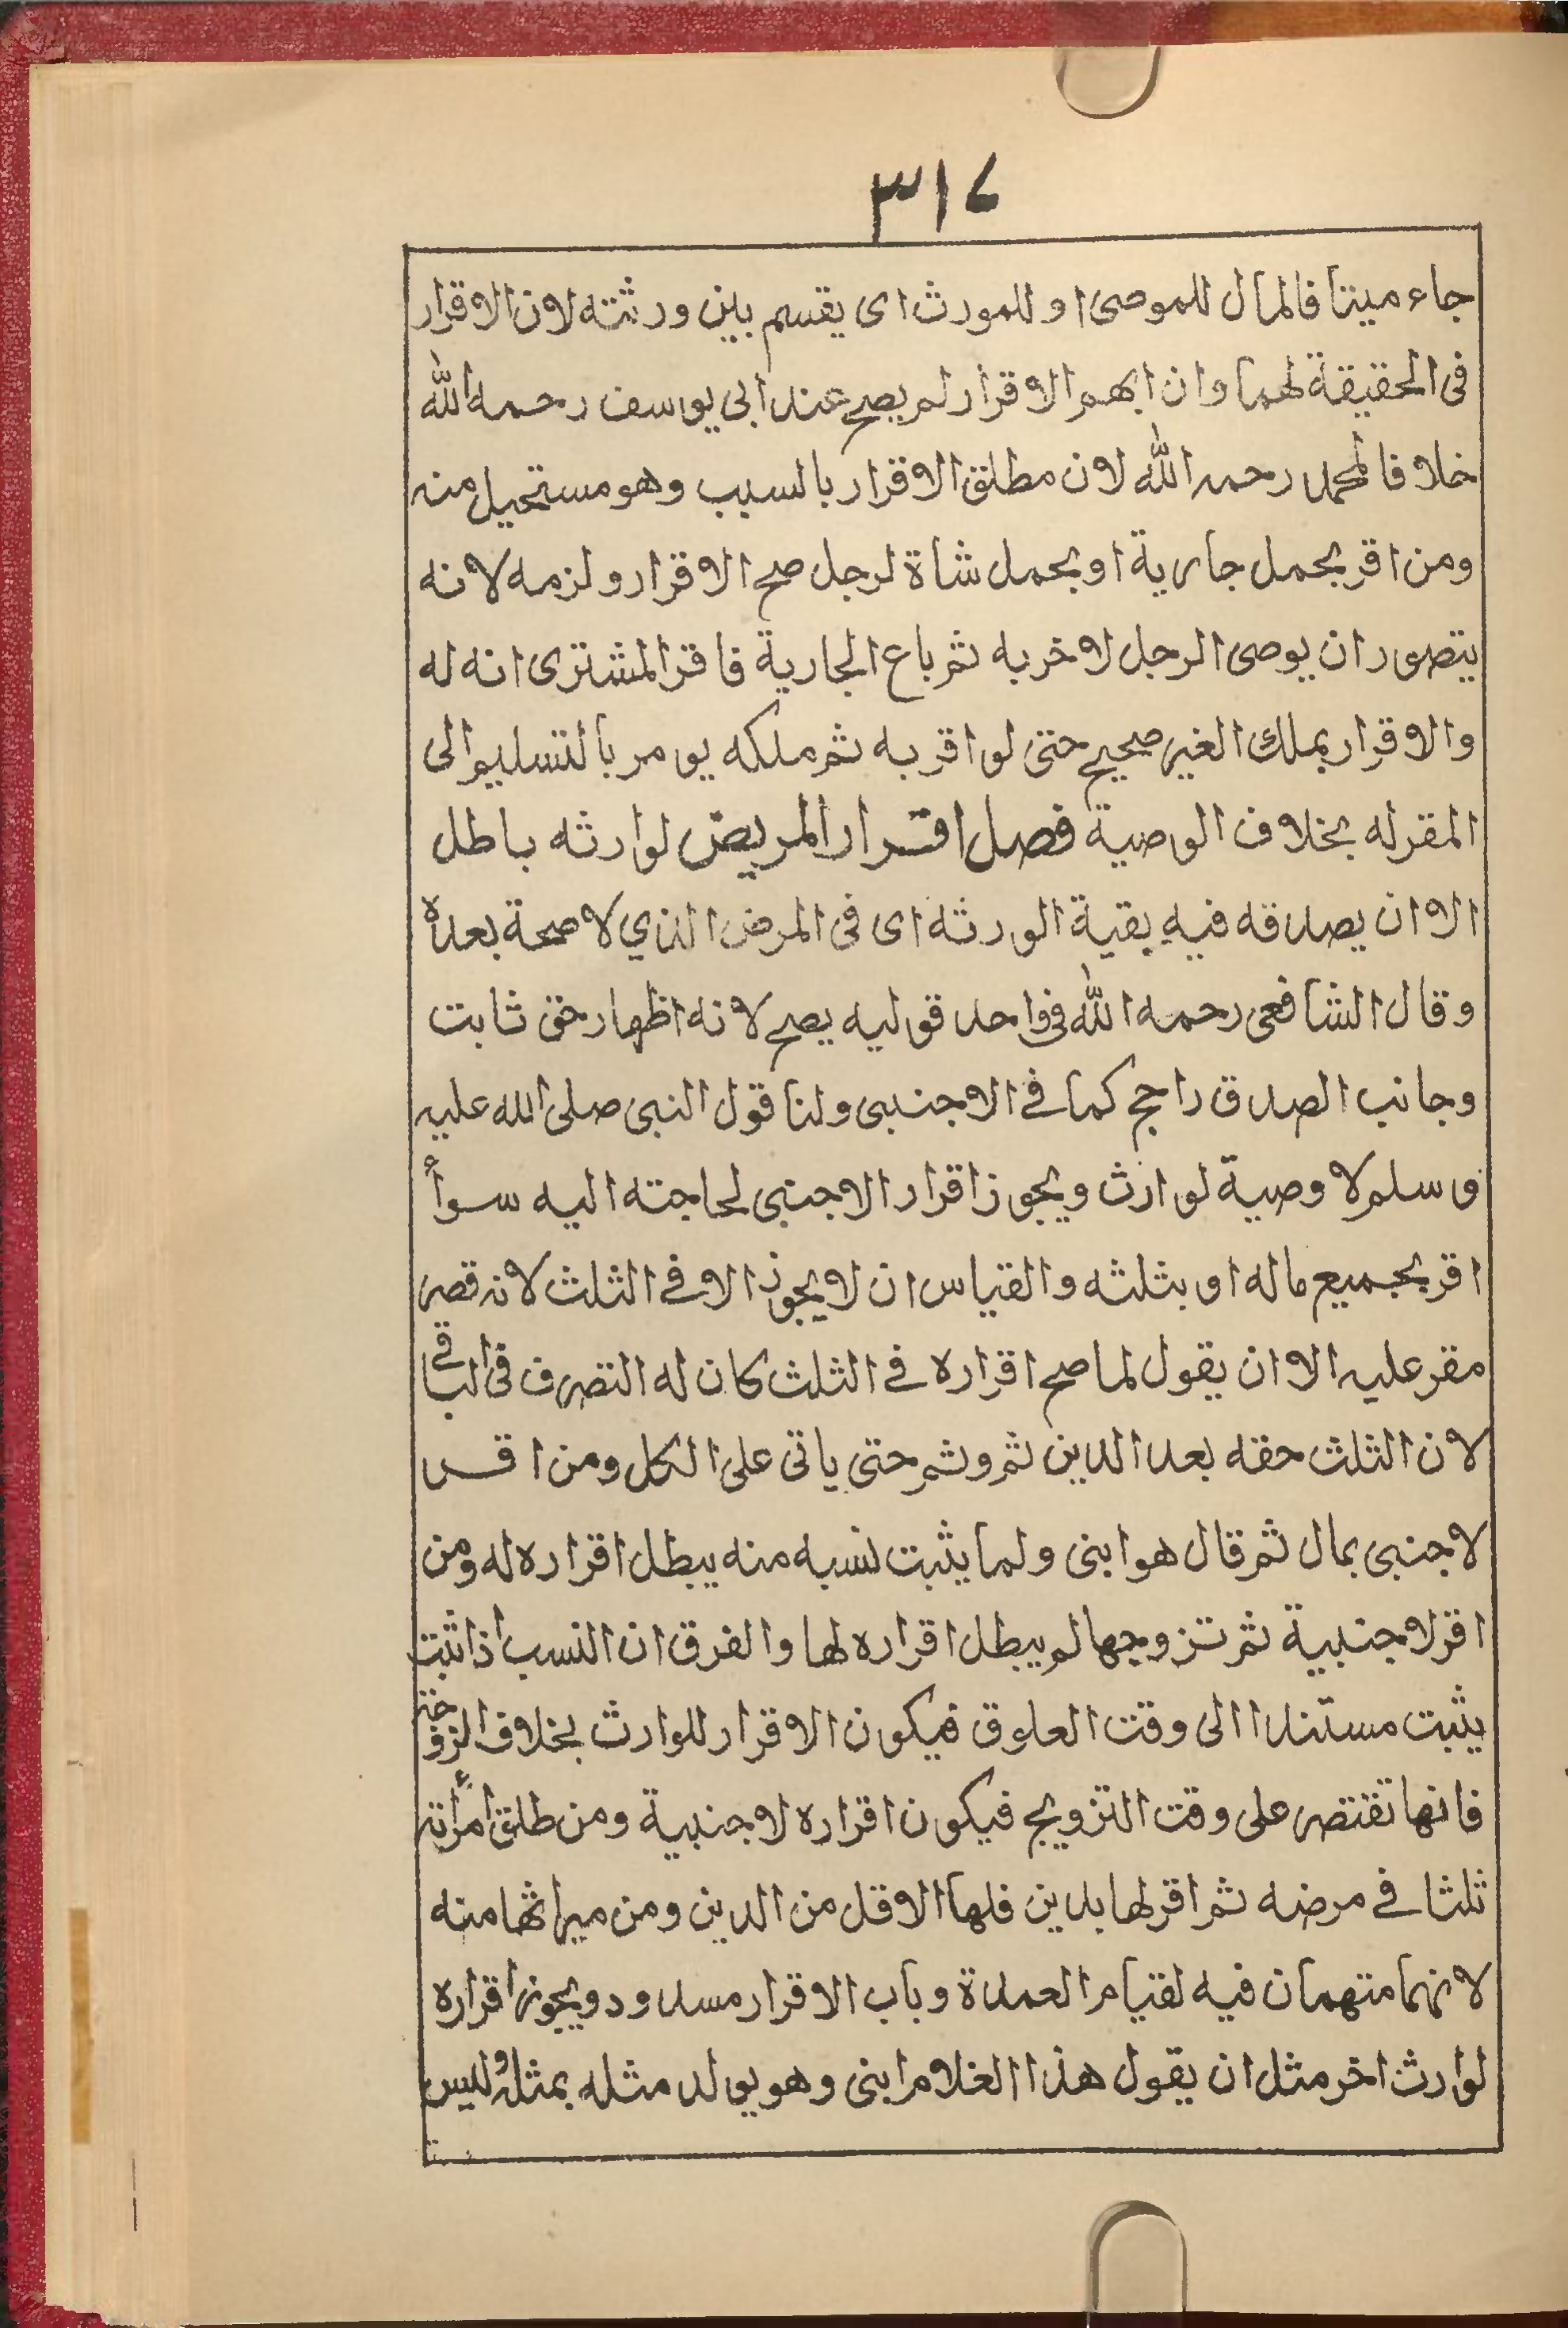 ٣١٤
جاء ميتا فالمال للموصى او للمورث اى يقسم بين ورثته لان الاقرار
فى الحقيقة لهما وان ابهم الاقرار لم يصح عند ابى يوسف رحمه الله
خلافا لمحمد رحمه الله لان مطلق الاقرار بالسبب وهو مستحيل منه
ومن اقر بحمل جارية او بحمل شاة لرجل صح الاقرار ولزمه لانه
يتصور ان يوصى الرجل لاخر به ثم باع الجارية فاقر المشترى انه له
والاقرار بملك الغير صحيح حتى لو اقر به ثم ملكه يومر بالتسليم الى
المقر له بخلاف الوصية فصل اقرار المريض لوارثه باطل
الا ان يصدقه فيه بقية الورثه اى فى المرض الذي لا صحة بعده
وقال الشافعى رحمه الله فى واحد قوليه يصح لانه اظهار حق ثابت
وجانب الصدق راجح كما فى الاجنبى ولنا قول النبى صلى الله عليه
وسلم لا وصية لوارث ويجوز اقرار الاجنبى لحاجته اليه سوأ
اقر بجميع ماله او بثلثه والقياس ان لا يجوز الا فى الثلث لانه قصر
مقر عليه الا ان يقول لما صح اقراره فى الثلث كان له التصرف فى الباقى
لان الثلث حقه بعد الدين ثم وثم حتى ياتى على الكل ومن اقر
لاجنبى بمال ثم قال هو ابنى ولما يثبت نسبه منه يبطل اقراره له ومن
اقر لاجنبية ثم تزوجها لم يبطل اقراره لها والفرق ان النسب اذا ثبت
يثبت مستندا الى وقت العلوق فيكون الاقرار للوارث بخلاف الزوجة
فانها تقتصر على وقت التزويج فيكون اقراره لاجنبية ومن طلق امرأته
ثلثا فى مرضه ثم اقر لها بدين فلها الاقل من الدين ومن ميراثها منه
لانهما متهمان فيه لقيام العدة وباب الاقرار مسدود ويجوز اقراره
لوارث اخر مثل ان يقول هذا الغلام ابنى وهو يولد مثله بمثله وليس